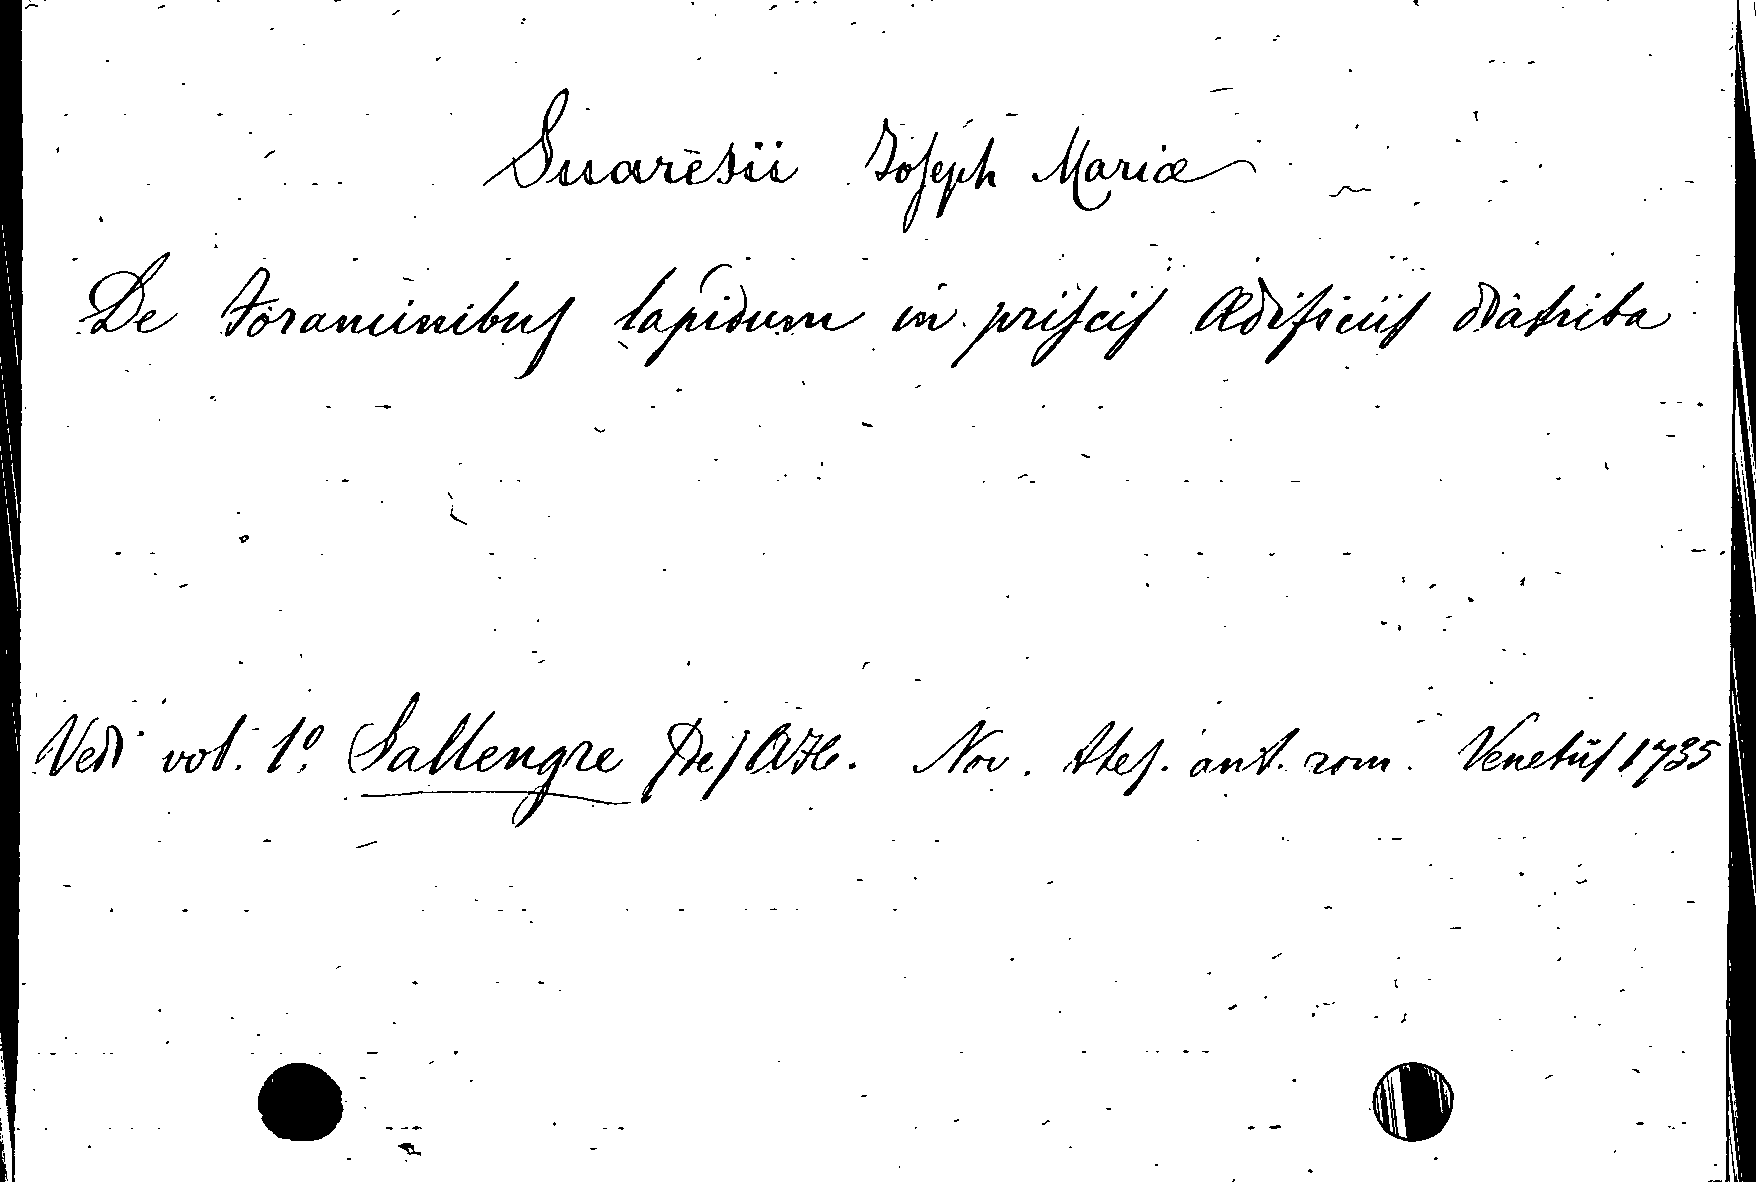 Suarèsii Joseph Mariæ
De Foraminibus lapidum in priscis Ædificiis diatriba
Vedi vol. 1º Sallengre Nov. thes. ant. rom. Venetiis 1735